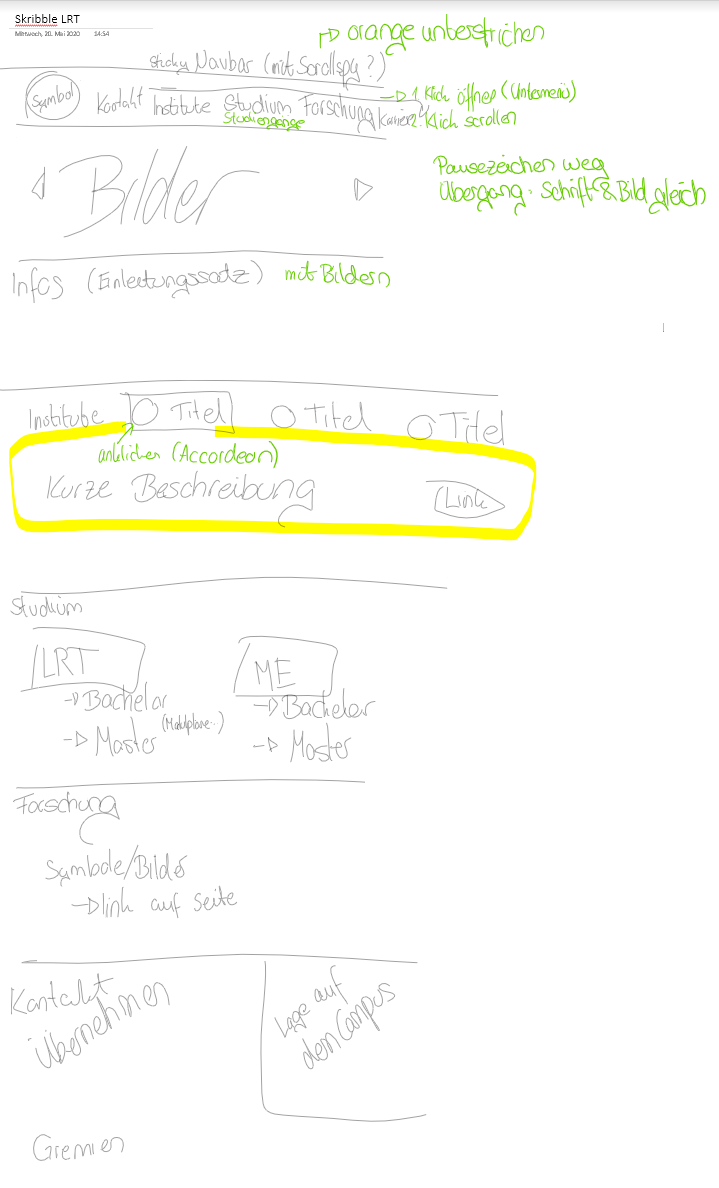 Skribble LRT
Mittwoch, 20. Mai 2020 14:54
orange unterstrichen
sticky Navbar (mit Scrollspy?)
Symbol Kontakt Institute Studium Forschung Karriere
Studiengänge
1. Klick öffnen (Untermenü)
2. Klick scrollen
Pausezeichen weg
Übergang: Schrift & Bild gleich
Bilder
Infos (Einleitungssatz) mit Bildern
Institute Titel Titel Titel
anklicken (Accordeon)
Kurze Beschreibung Link
Studium
LRT ME
Bachelor Bachelor
Master (Modulpläne..) Master
Forschung
Symbole/Bilder
link auf Seite
Kontakt
übernehmen
Lage auf
dem Campus
Gremien